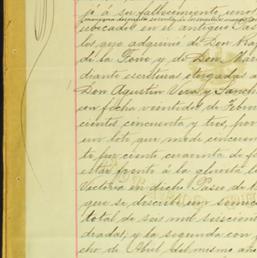 jó á su fallecimiento, unos
ubicados en el antiguo Pas
los que adquirió de Don Ra
de la Torre y de Don Mar
diante escrituras otorgadas a
Don Agustín Vera y Sanch
en fecha veintidos de Febre
cientos cincuenta y tres, por
un lote que mide cincuen
ti por ciento cuarenta de f
estar frente á la glorieta
Victoria en dicho Paseo de
que se describe un semici
total de seis mil seiscien
dradas, y la segunda con f
cho de Abril del mismo año